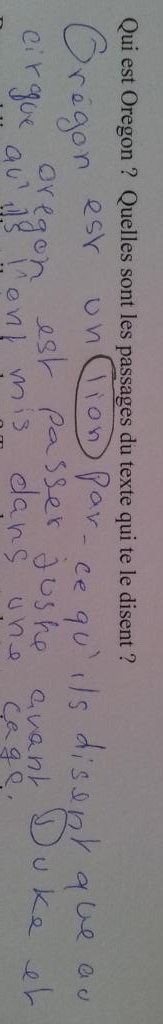 Qui est Oregon ? Quelles sont les passages du texte qui te le disent ?
Orégon est un lion par-ce qu'ils disent que au
cirque oregon est passer juske avant Duke et
qu'ils l'ont mis dans une cage.